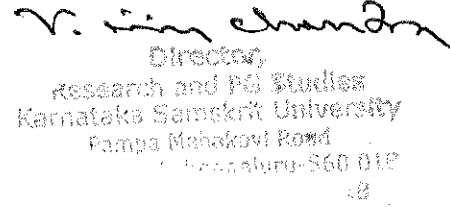 V.
Director,
Research and PG Studies
Karnataka Samskrit University
Pampa Mahakavi Road
Bengaluru-560 018